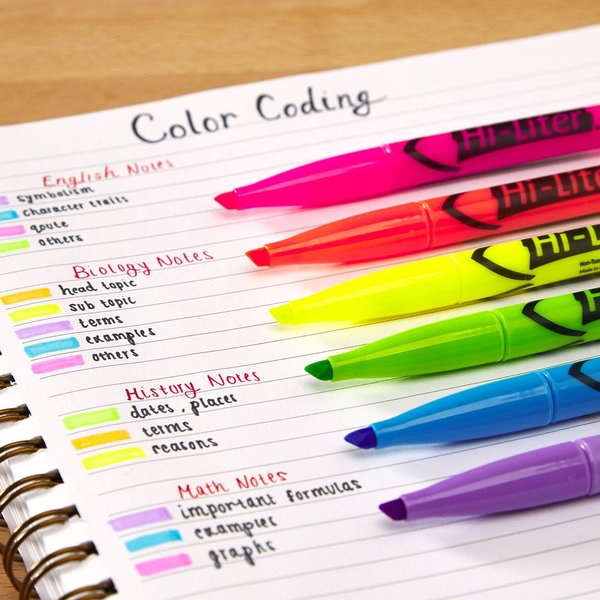 Color Coding
English Notes
symbolism
character traits
qoute
others
Biology Notes
head topic
sub topic
terms
examples
others
History Notes
dates, places
terms
reasons
Math Notes
important formulas
examples
graphs
Hi-Liter
Hi-Liter
Hi-L
Non-Tox
H